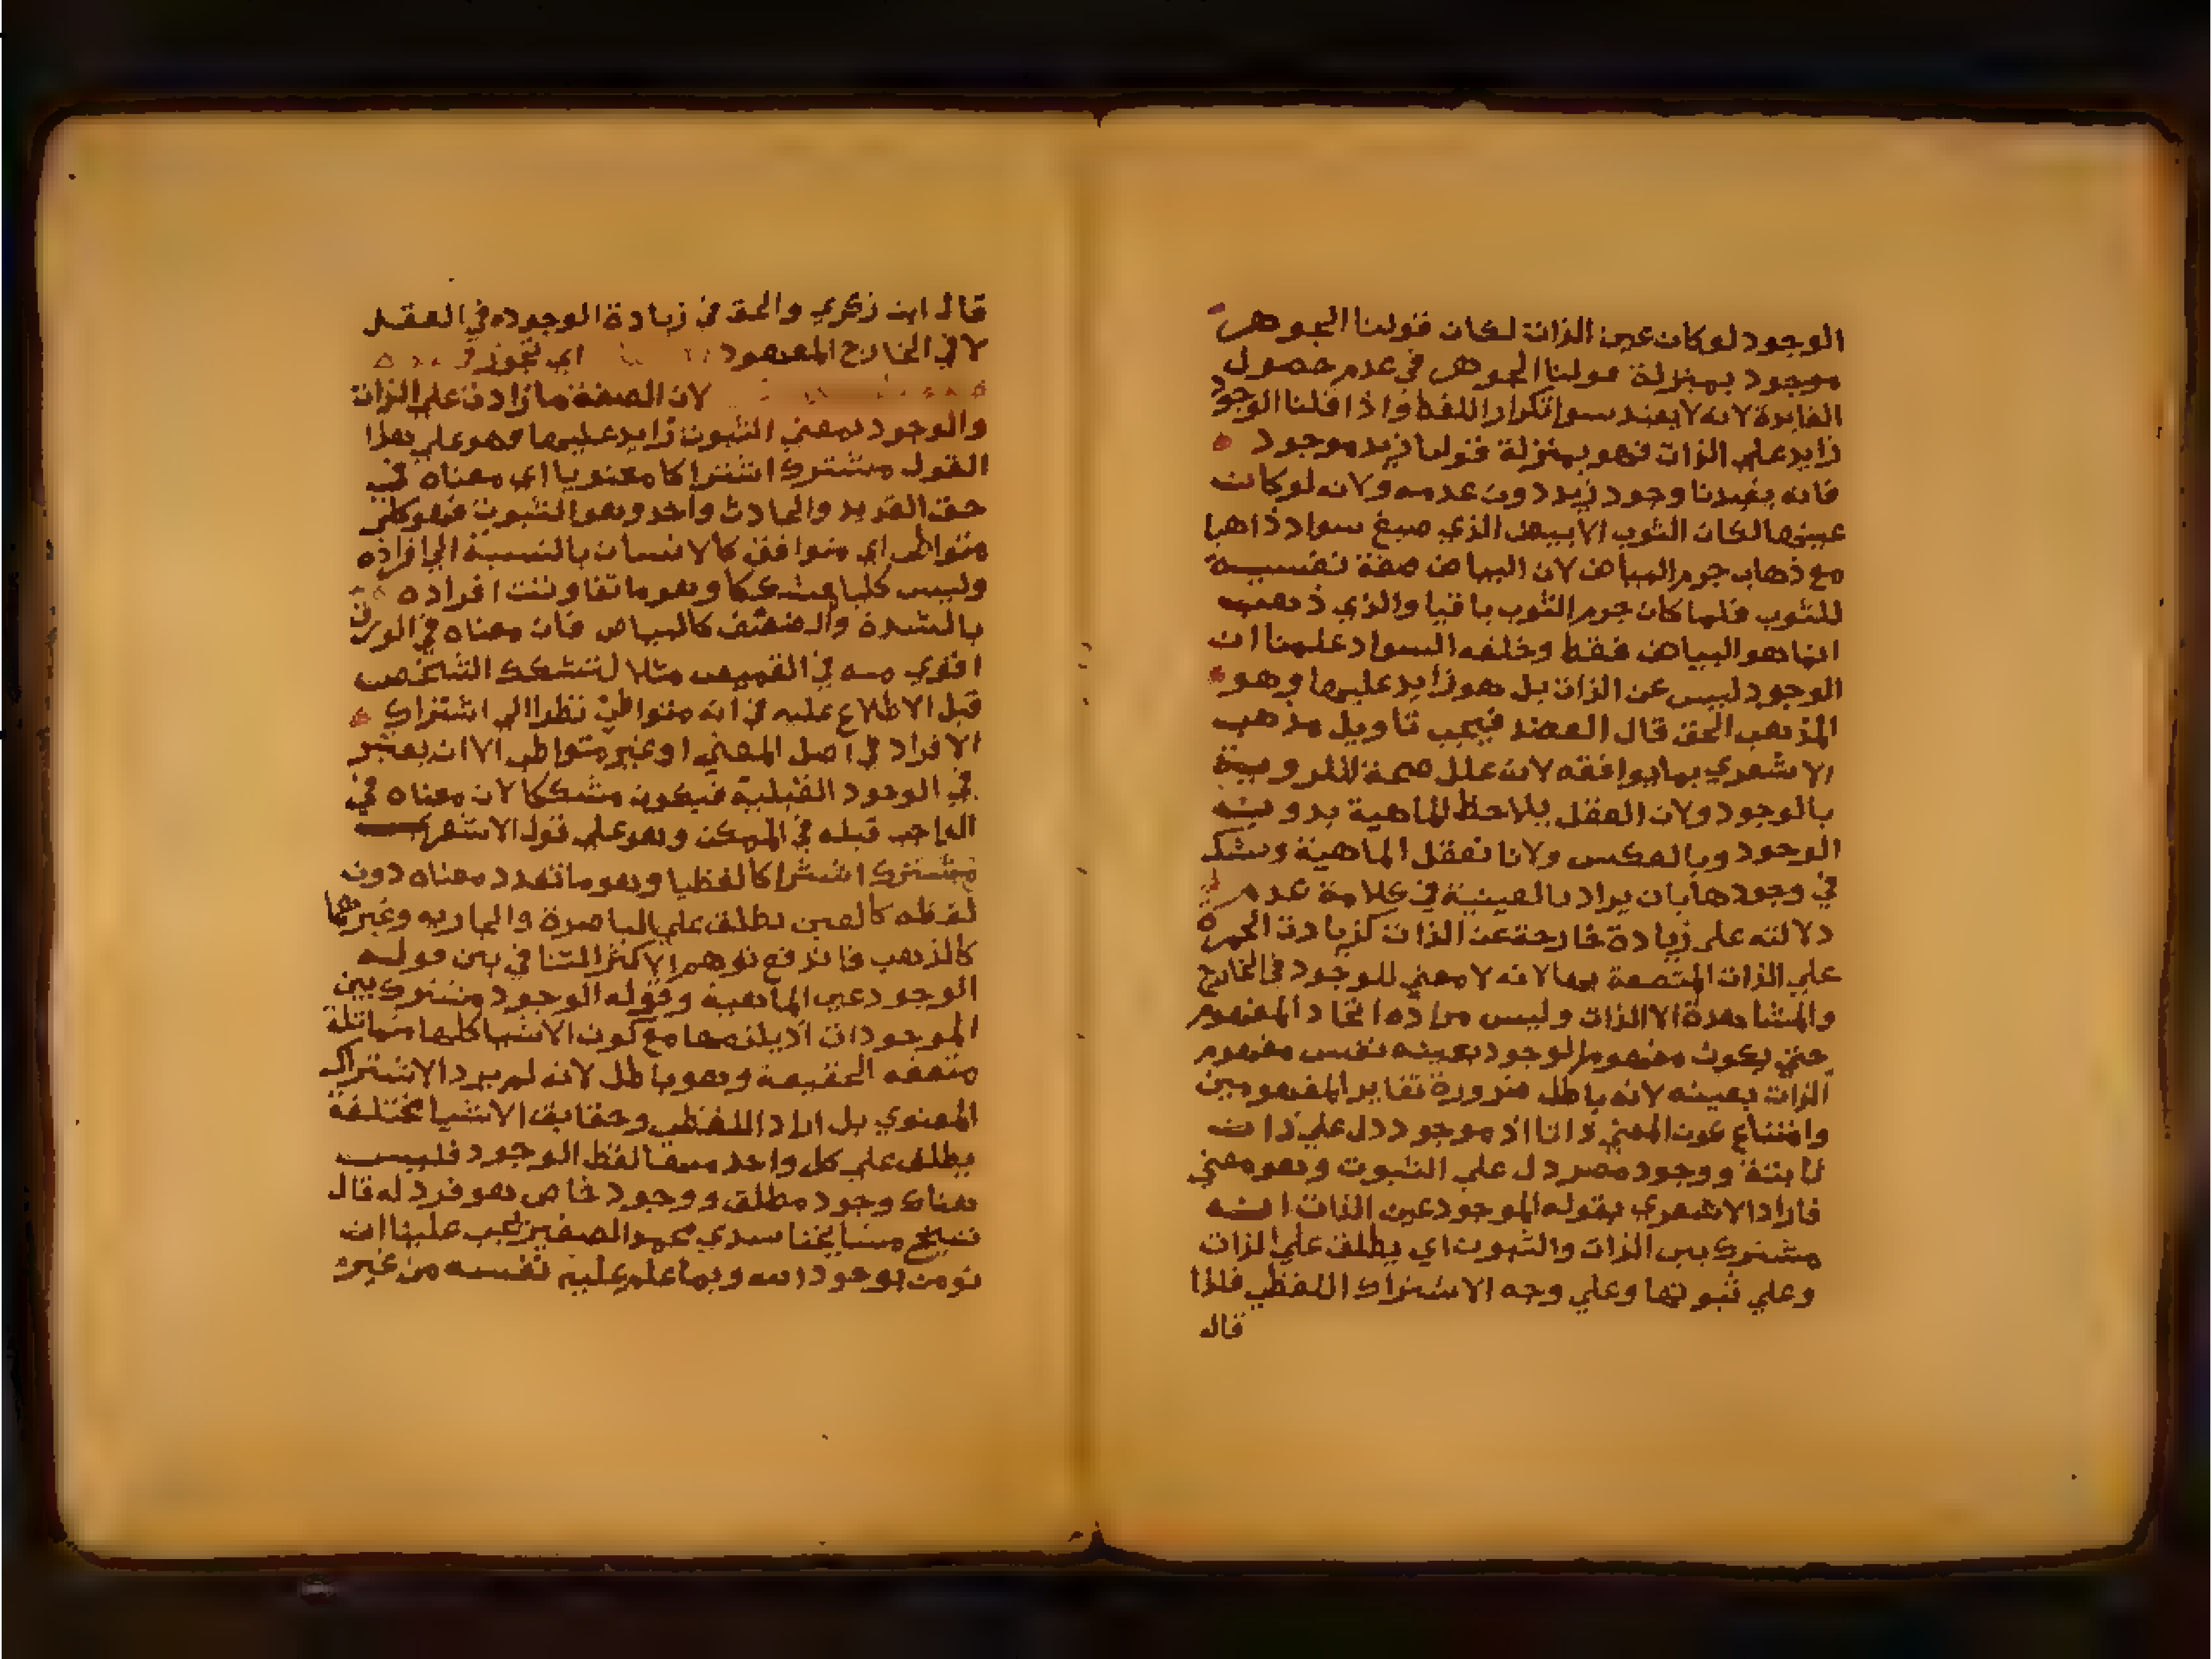 الوجود لوكان عين الذات لكان قولنا الجوهر
موجود بمنزلة قولنا الجوهر في عدم حصول
الفايدة لانه لا يفيد سوا تكرار اللفظ واذا قلنا الوجود
زايد على الذات فهو بمنزلة قولنا زيد موجود
فانه يفيدنا وجود زيد دون عدمه ولانه لو كانت
عينها لكان الثوب الابيض الذي صبغ سواد ذاهبا
مع ذهاب جرم البياض لان البياض صفة نفسية
للثوب فلما كان جرم الثوب باقيا والذي ذهب
انما هو البياض فقط وخلفه السواد علمنا ان
الوجود ليس عن الذات بل هو زايد عليها وهو
المذهب الحق قال العضد فيجب تاويل مذهب
الاشعري بما يوافقه لانه علل صحة للروية
بالوجود ولان العقل يلاحظ الماهية بدونه
الوجود وبالعكس ولانا نعقل الماهية ونشك
في وجودها بان يراد بالعينية في كلامه عدم
دلالته على زيادة خارجة عن الذات كزيادت الحمرة
علي الذات المتصفة بها لانه لا معني للوجود في الخارج
والمشاهدة الا الذات وليس مراده اتحاد المفهوم
حتي يكون مفهوم الوجود بعينه نفس مفهوم
الذات بعينه لانه باطل ضرورة تغاير المفهومين
وامتناع كون المعني ذاتا اذ موجود دل علي ذات
ثابتة ووجود مصدر دل علي الثبوت وهو معني
فاراد الاشعري بقوله الموجود عين الذات انه
مشترك بين الذات والثبوت اي يطلق علي الذات
وعلي ثبوتها وعلي وجه الاشتراك اللفظي فلذا
قال
قال ابن زكري والحق في زيادة الوجود في العقل
لا في الخارج المعهود اي تجوز
لان الصفة ما زادت علي الذات
والوجود بمعني الثبوت زايد عليها فهو علي هذا
القول مشترك اشتراكا معنويا اي معناه في
حق القديم والحادث واحد وهو الثبوت فهو كلي
متواطي اي متوافق كالانسان بالنسبة الي افراده
وليس كليا مشككا وهو ما تفاوتت افراده
بالشدة والضعف كالبياض فان معناه في الورق
اقوي منه في القميص مثلا لتشكك الشخص
قبل الاطلاع عليه في انه متواطي نظرا الي اشتراك
الافراد في اصل المعني او غير متواطي الا ان يعتبر
في الوجود القبلية فيكون مشككا لان معناه في
الواجب قبله في الممكن وهو علي قول الاشعري
مشترك اشتراكا لفظيا وهو ما تعدد معناه دون
لفظه كالعين يطلق علي الباصرة والجاريه وغيرها
كالذهب فاندفع توهم الاكثر التنافي بين قوله
الوجود عين الماهية وقوله الوجود مشترك بين
الموجودات اذ يلزمها مع كون الاشيا كلها متماثلة
متفقه الحقيقة وهو باطل لانه لم يرد الاشتراك
المعنوي بل اراد اللفظي وحقايق الاشيا مختلفة
يطلق علي كل واحد منها لفظ الوجود فليس
هناك وجود مطلق ووجود خاص هو فرد له قال
شيخ مشايخنا سيدي محمد الصغير يجب علينا ان
نومن بوجود الله وبما علم عليه نفسه من غير